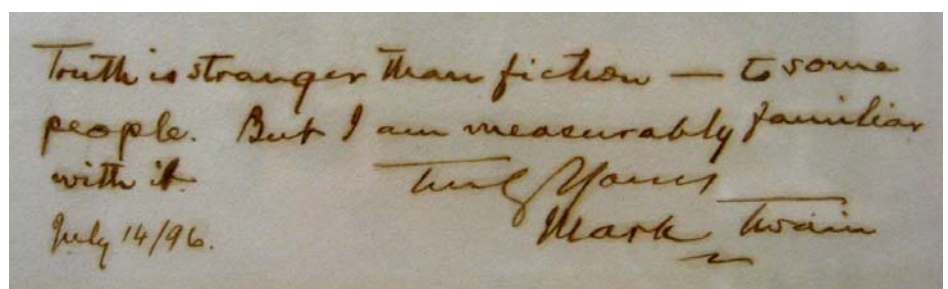 Truth is stranger than fiction — to some
people. But I am measurably familiar
with it.
Truly Yours
Mark Twain
July 14/96.